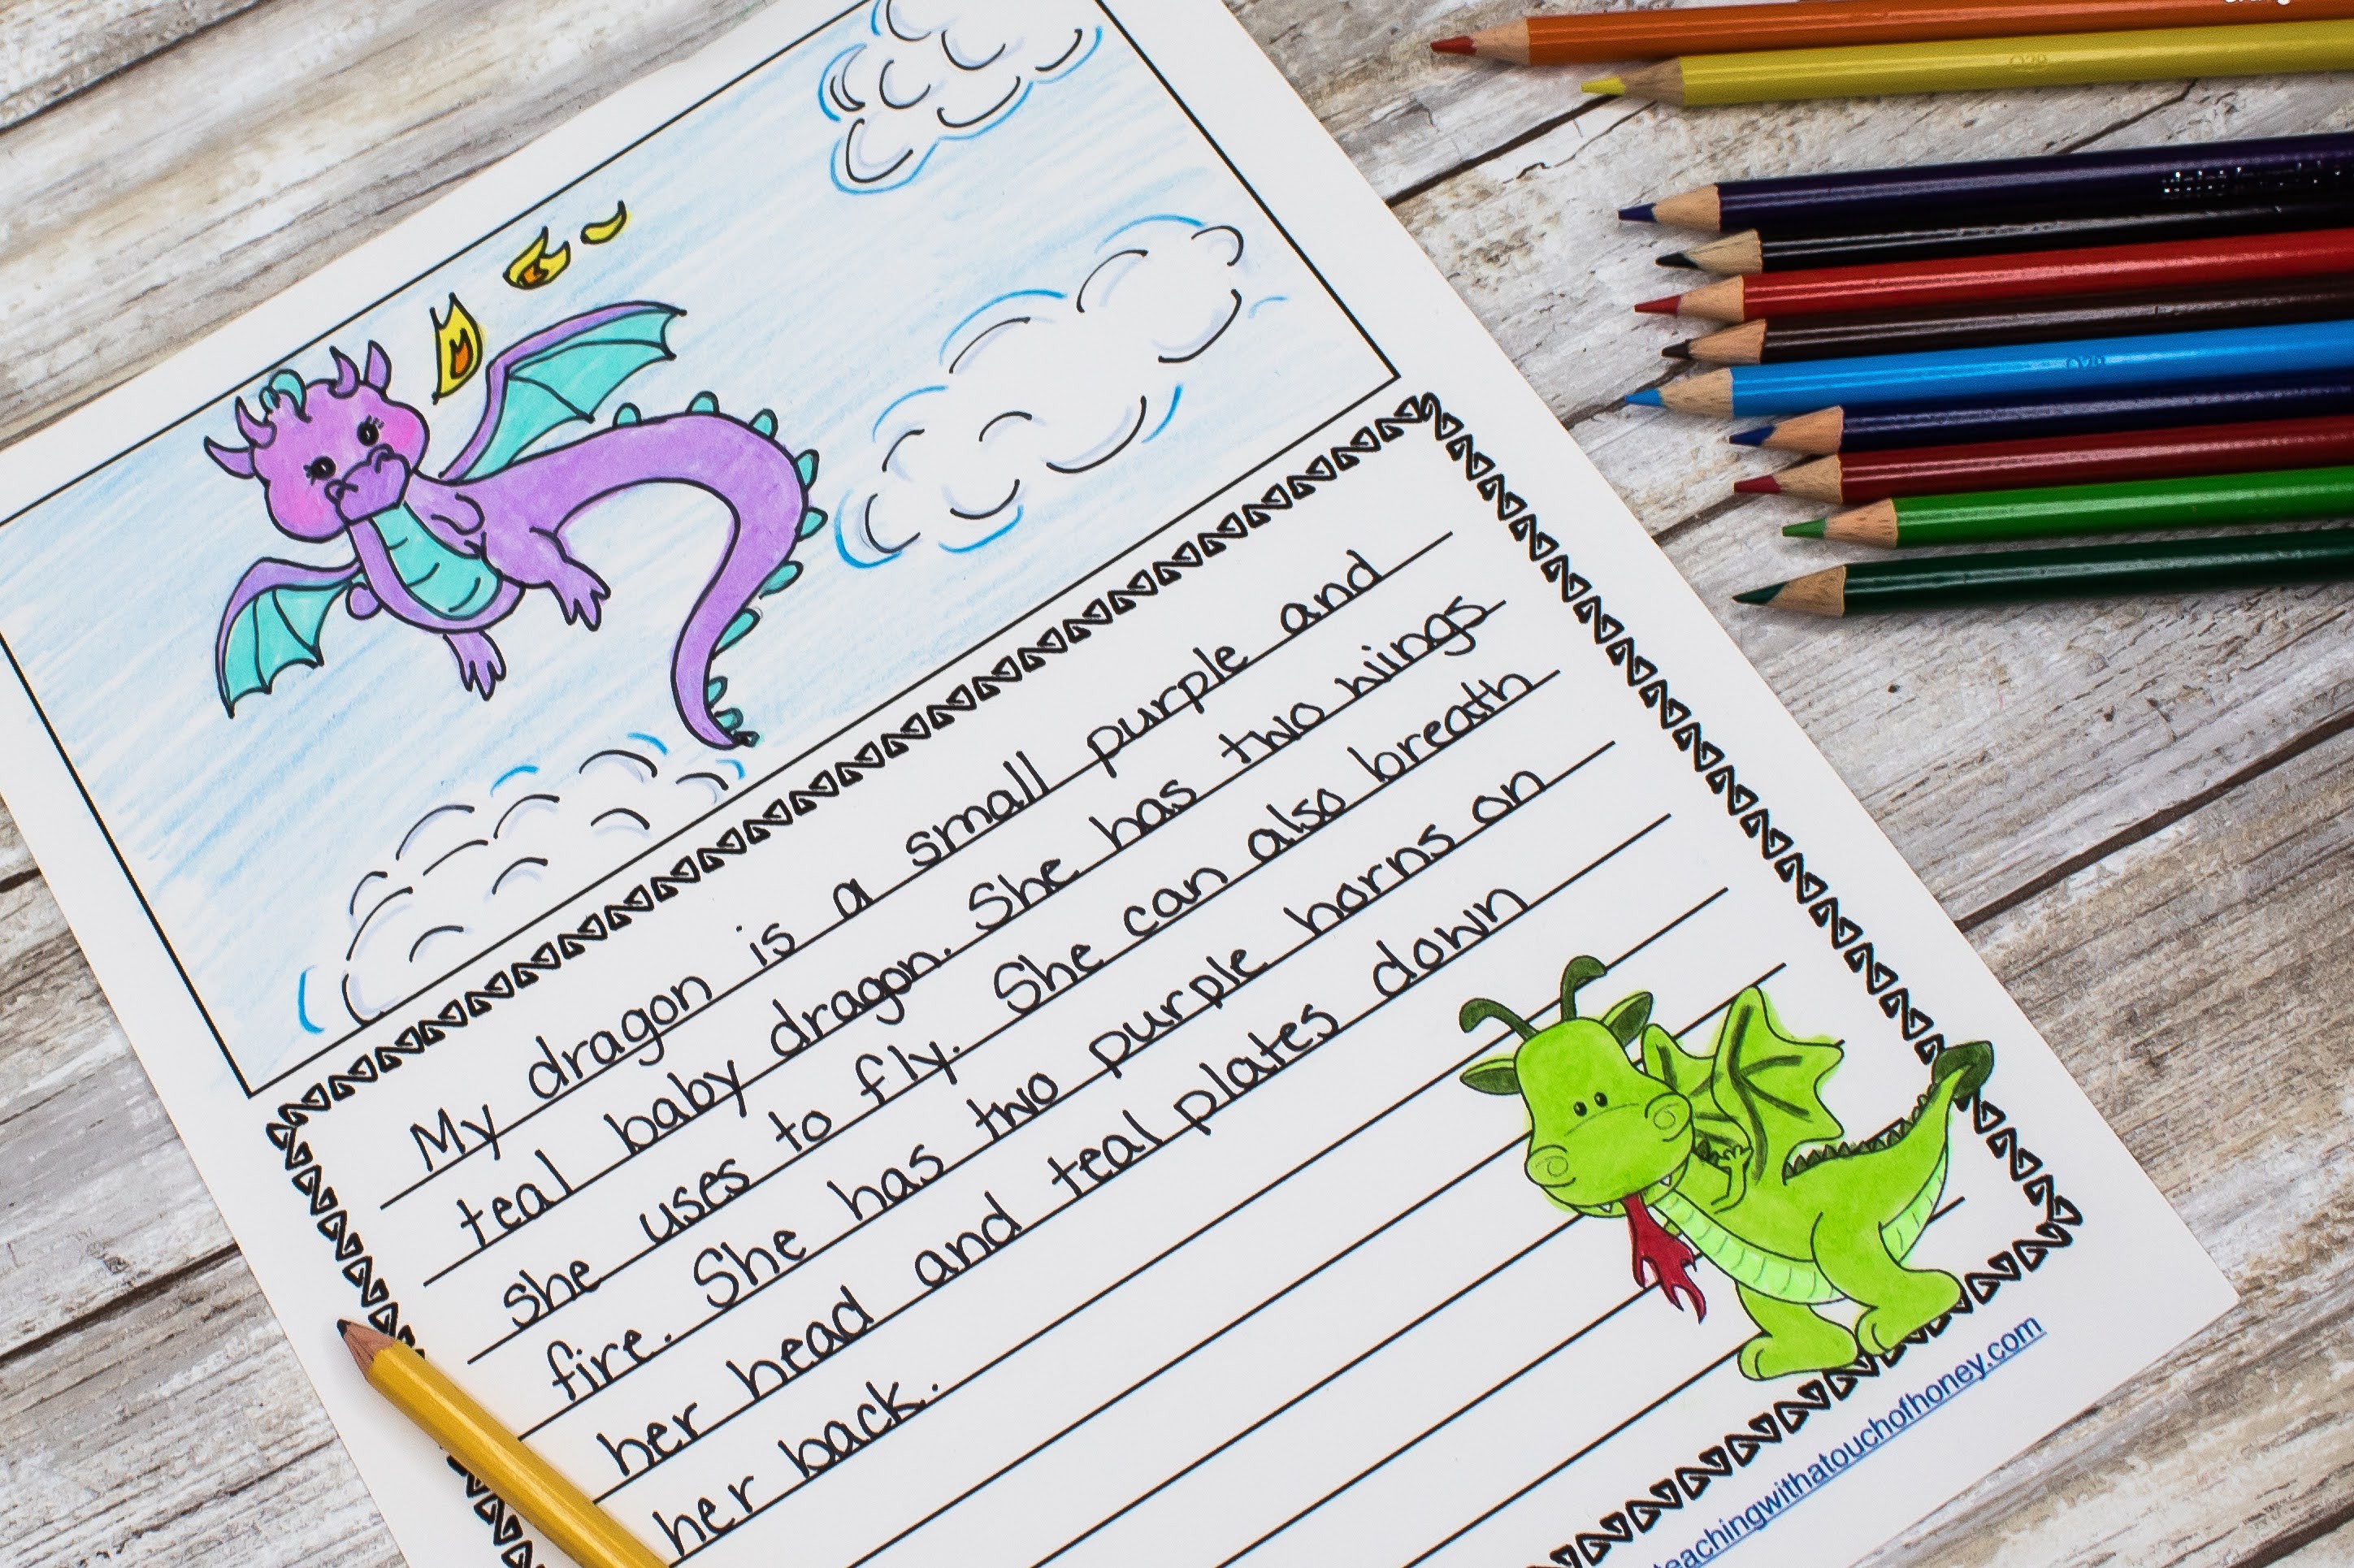 My dragon is a small purple and
teal baby dragon. She has two wings
she uses to fly. She can also breath
fire. She has two purple horns on
her head and teal plates down
her back.
teachingwithatouchofhoney.com